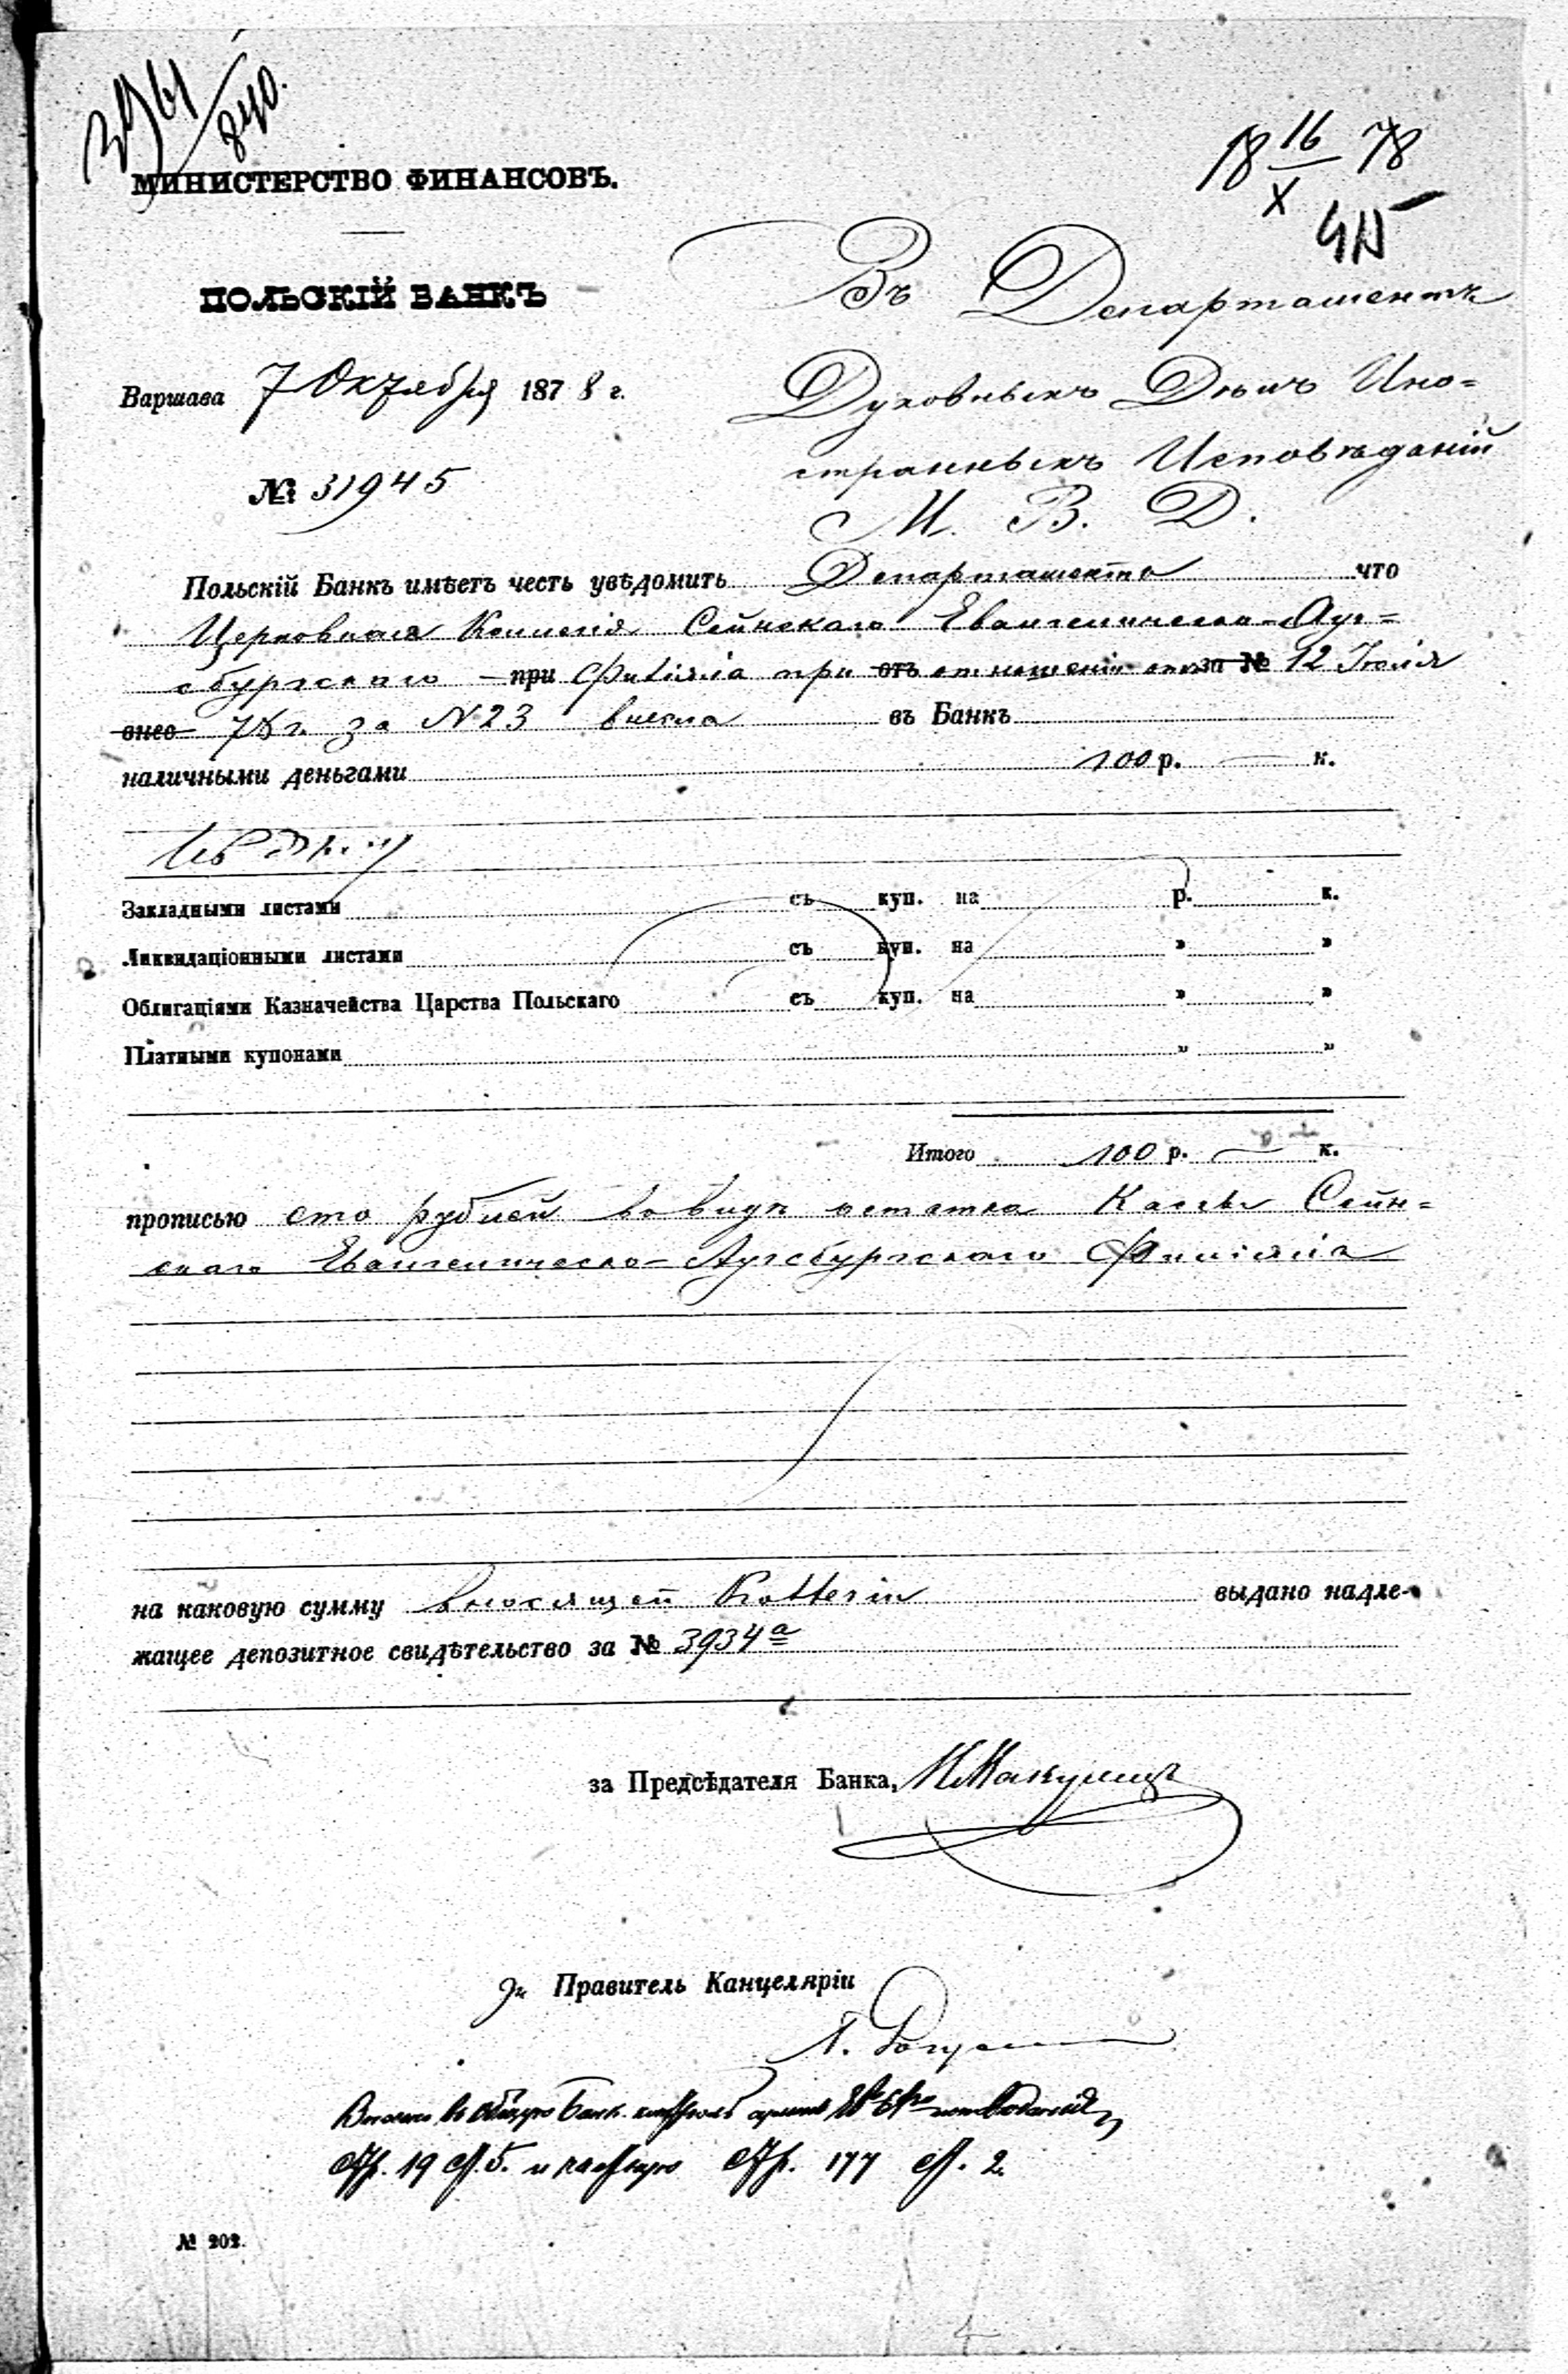 3961/840.
18 16/X 78
МИНИСТЕРСТВО ФИНАНСОВЪ.
ПОЛЬСКІЙ БАНКЪ
Въ Департаментъ
Варшава 7 Октября 1878 г.
Духовныхъ Дѣлъ Ино=
странныхъ Исповѣданій
№ 31945
М. В. Д.
Польскій Банкъ имѣетъ честь увѣдомить Департаментъ что
Церковная Коллегія Сейнскаго Евангелическо-Ауг=
сбургскаго при Филіяла при отъ отношеніи отъ за № 12 Іюля
внес 78 г. за N 23 внесла въ Банкъ
наличными деньгами 100 р. — к.
Закладными листами съ куп. на р. к.
Ликвидаціонными листами съ куп. на " "
Облигаціями Казначейства Царства Польскаго съ куп. на " "
Платными купонами " "
Итого 100 р. — к.
прописью сто рублей въ видѣ остатка Кассы Сейн=
скаго Евангелическо-Аугсбургскаго Филіяла
на каковую сумму вносящей выдано надле-
жащее депозитное свидѣтельство за № 3934 а
за Предсѣдателя Банка,
Правитель Канцеляріи
Стр. 19 ст. 5. и Стр. 177 ст. 2.
№ 202.